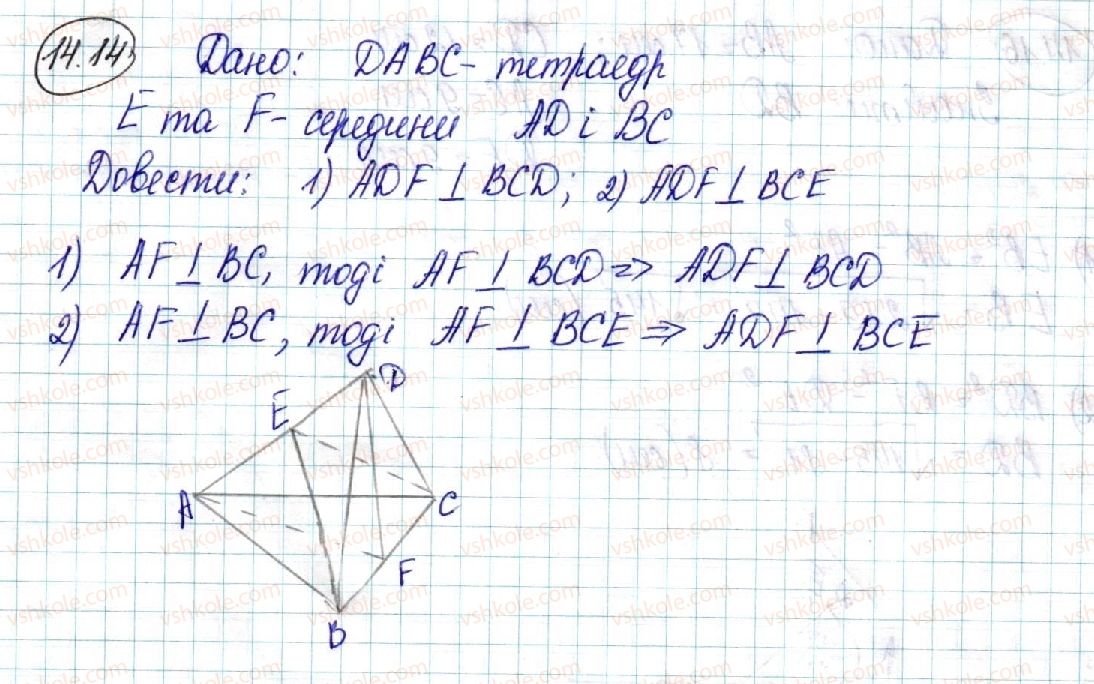 14.14
Дано: DABC - тетраедр
E та F - середини AD і BC
Довести: 1) ADF ⊥ BCD; 2) ADF ⊥ BCE
1) AF ⊥ BC, тоді AF ⊥ BCD ⇒ ADF ⊥ BCD
2) AF ⊥ BC, тоді AF ⊥ BCE ⇒ ADF ⊥ BCE
D
E
A
C
F
B